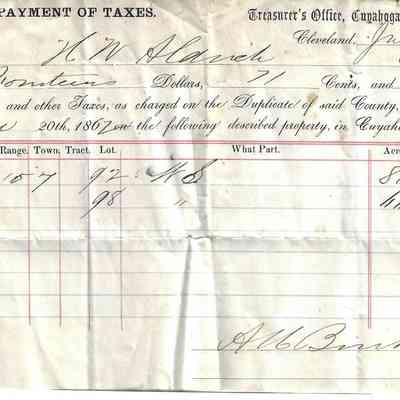 PAYMENT OF TAXES. Treasurer's Office, Cuyahoga
Cleveland,
H W Aldrich
Fourteen Dollars, 71 Cents, and
and other Taxes, as charged on the Duplicate of said County,
20th, 1867 on the following described property, in Cuyah
Range. Town. Tract. Lot. What Part. Acre
10 7 92 W S 8
98 "